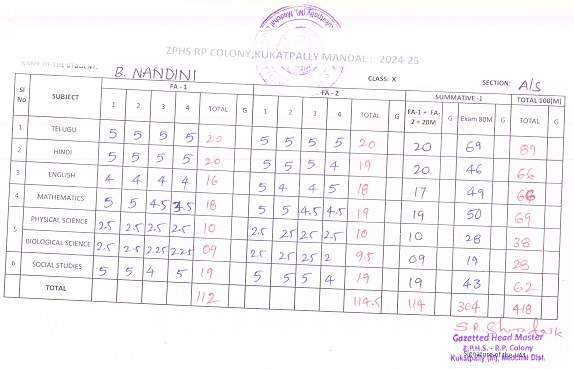 Kukatpally (M), Medchal
ZPHS RP COLONY, KUKATPALLY MANDAL :: 2024-25
NAME OF THE STUDENT: B. NANDINI CLASS: X SECTION: A/S
Sl No SUBJECT FA - 1 FA - 2 SUMMATIVE -1 TOTAL 100(M)
1 2 3 4 TOTAL G 1 2 3 4 TOTAL G FA-1 + FA-2 = 20M Exam 80M G TOTAL G
1 TELUGU 5 5 5 5 20 5 5 5 5 20 20 69 89
2 HINDI 5 5 5 5 20 5 5 5 4 19 20 46 66
3 ENGLISH 4 4 4 4 16 5 4 4 5 18 17 49 66
4 MATHEMATICS 5 5 4.5 3.5 18 5 5 4.5 4.5 19 19 50 69
5 PHYSICAL SCIENCE 2.5 2.5 2.5 2.5 10 2.5 2.5 2.5 2.5 10 10 28 38
BIOLOGICAL SCIENCE 2.5 2.5 2.25 2.25 09 2.5 2.5 2.5 2 9.5 09 19 28
6 SOCIAL STUDIES 5 5 4 5 19 5 5 5 4 19 19 43 62
TOTAL 112 114.5 114 304 418
Gazetted Head Master
Z.P.H.S. - R.P. Colony
Signature of the HM
Kukatpally (M), Medchal Dist.